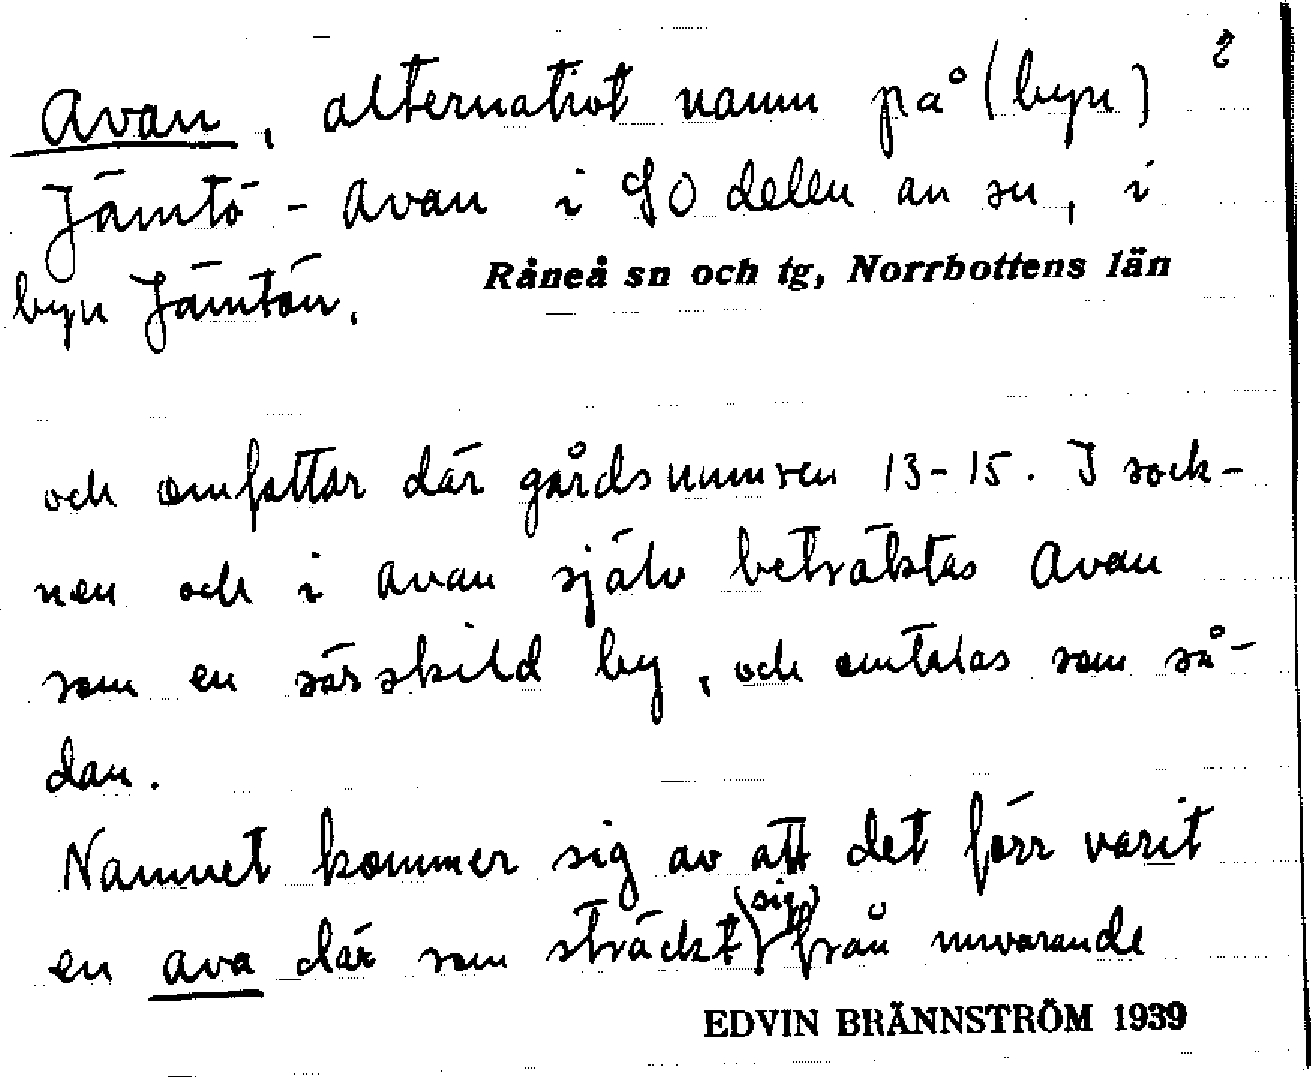 2
Avan, alternativt namn på (byn)
Jämtö-Avan i SO delen av sn, i
byn Jämtön.
Råneå sn och tg, Norrbottens län
och omfattar där gårdsnumren 13-15. I sock-
nen och i Avan själv betraktas Avan
som en särskild by, och omtalas som så-
dan.
Namnet kommer sig av att det förr varit
en ava där som sträckt (sig) från nuvarande
EDVIN BRÄNNSTRÖM 1939